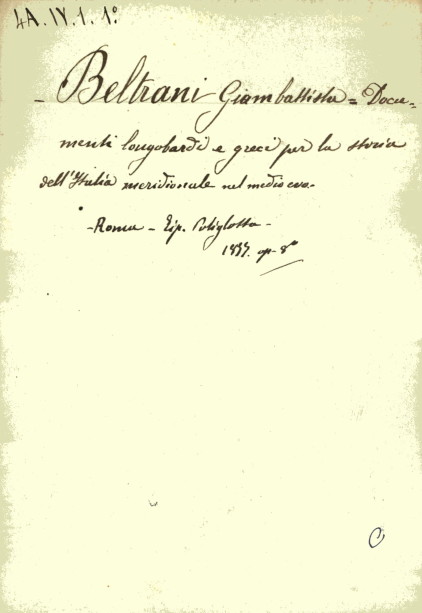 4A. IV. 1. 1º
- Beltrani Giambattista = Docu=
menti longobardi e greci per la storia
dell'Italia meridionale nel medio evo.
- Roma - Tip. Poliglotta -
op. 8º
C